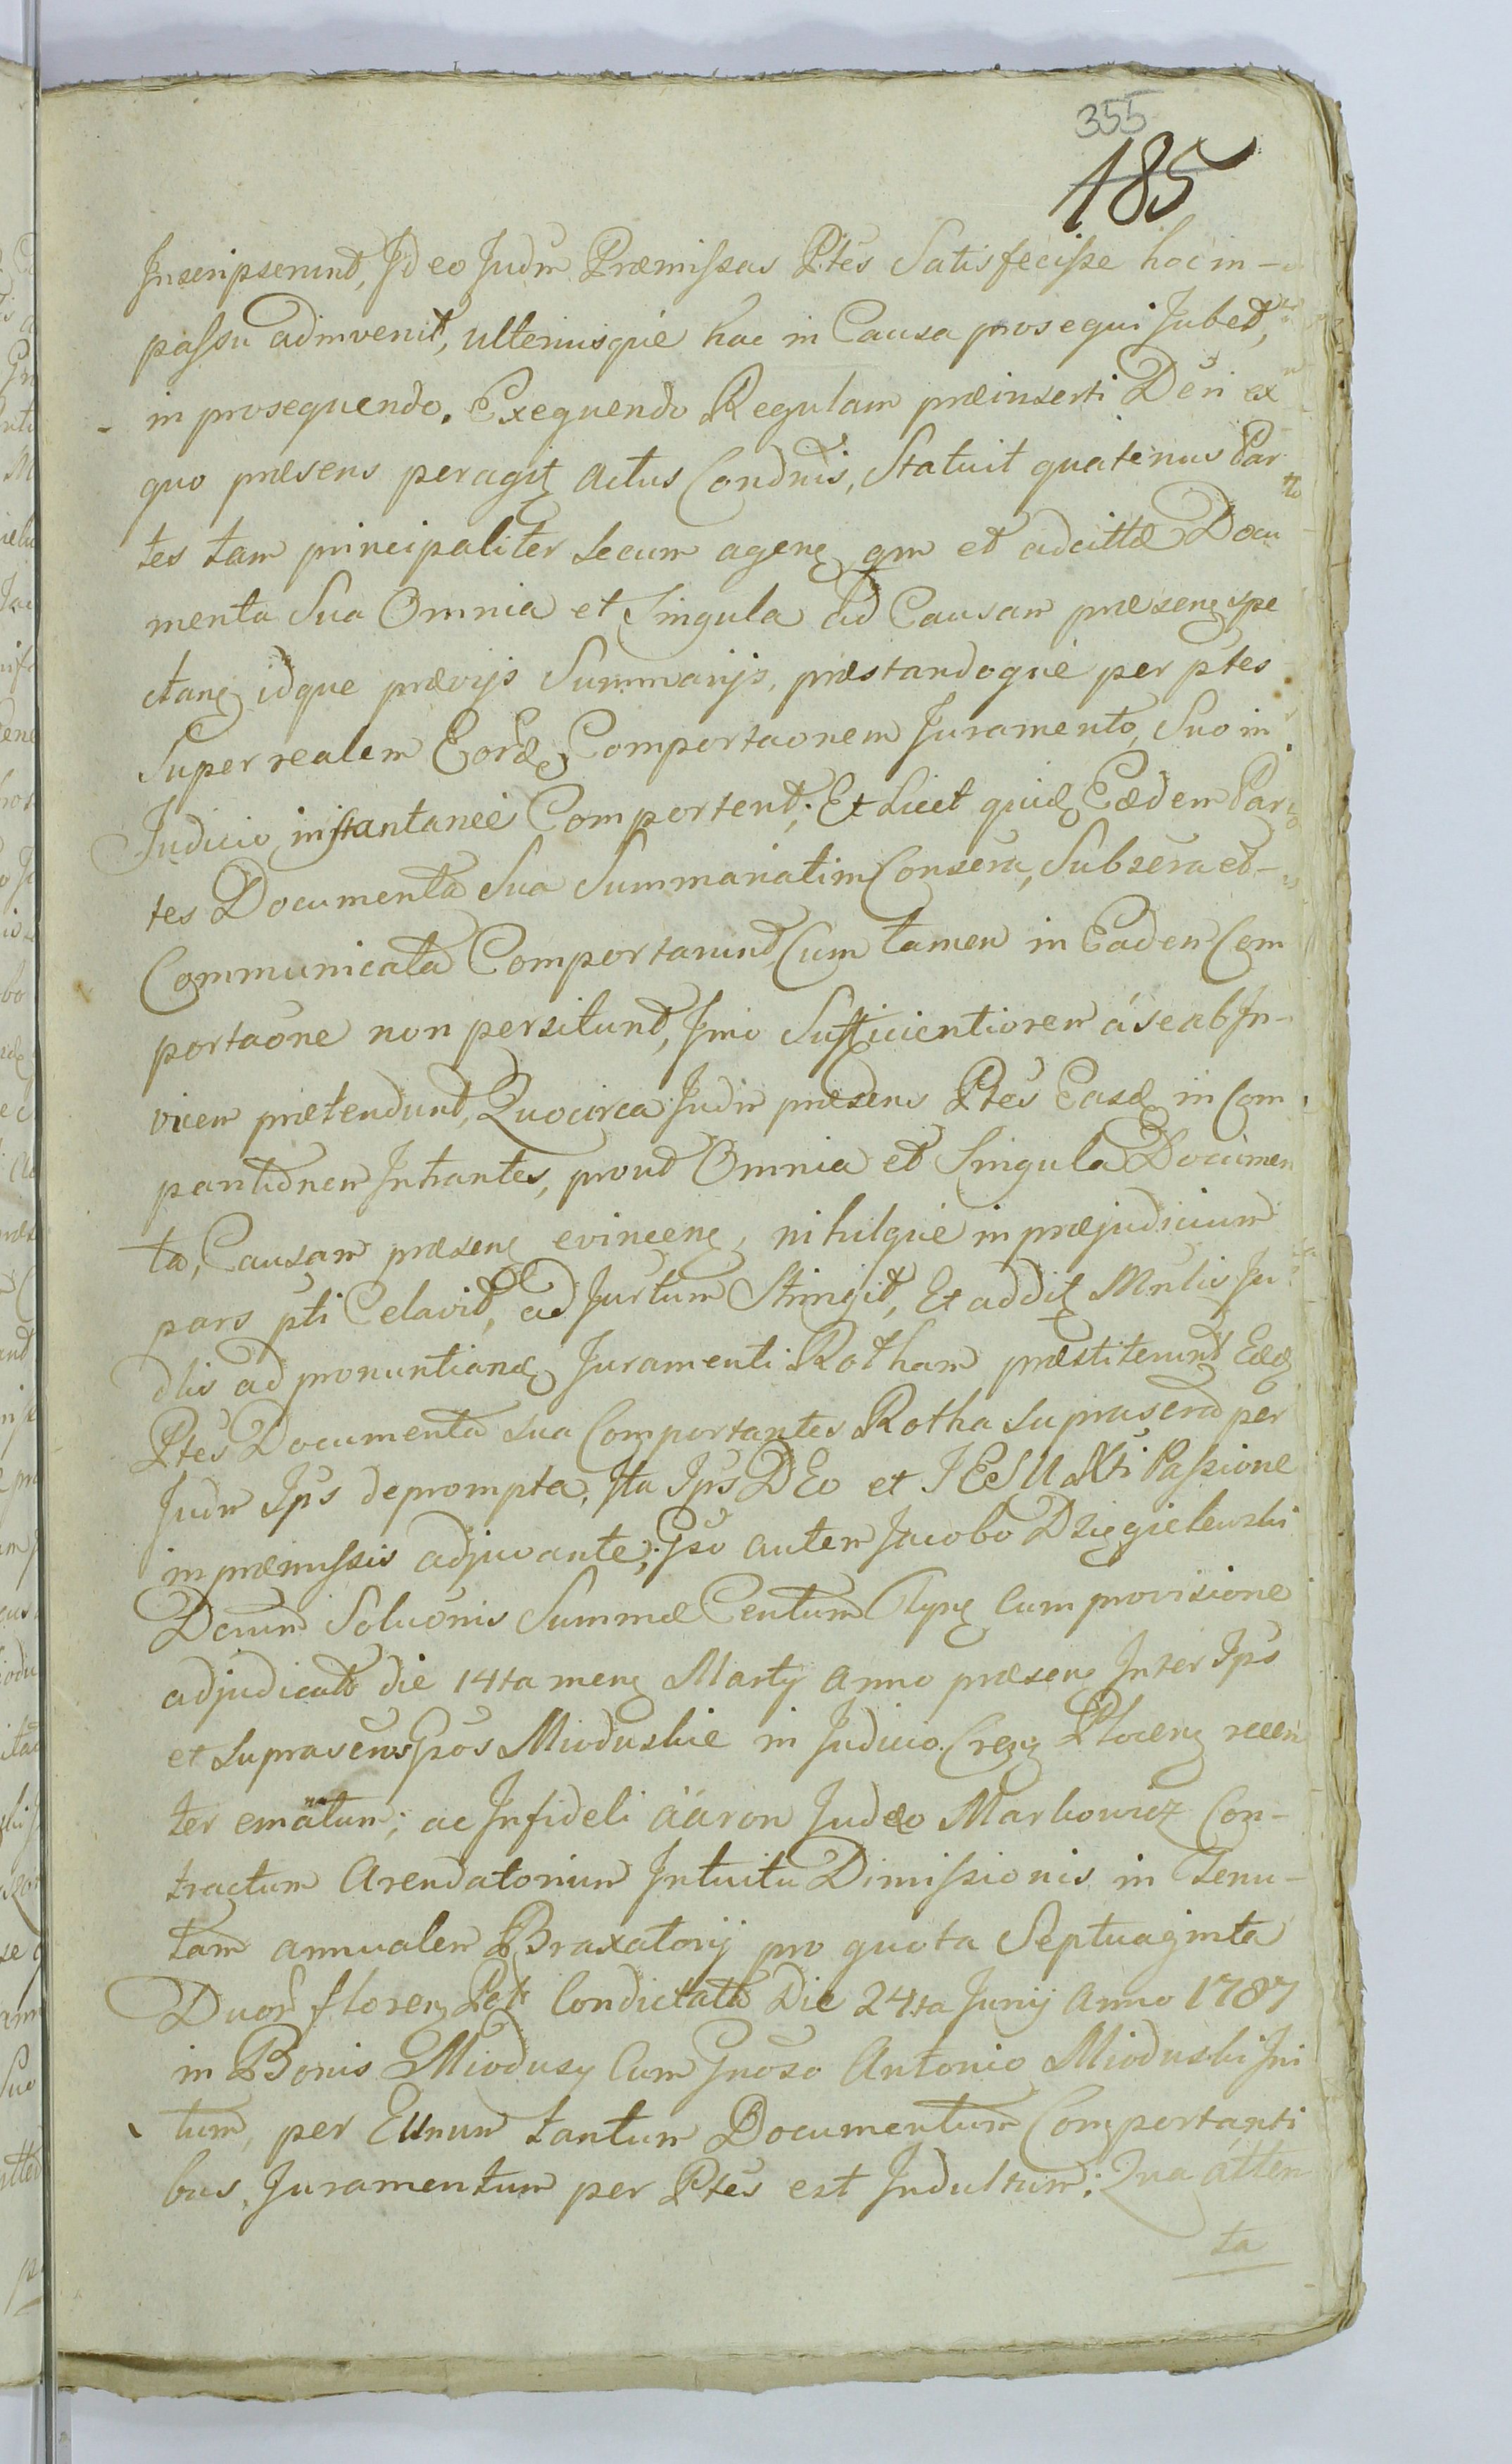 355
185
Inscripserunt, Ideo Judm Præmissas Ptes Satisfecisse hoc in-
passu adinvenit, ulteriusque hac in Causa prosequi Jubet,
in prosequendo. Exequendo Regulam præinserti Dēri ex
quo præsens peragitꝫ actus Condnis, Statuit quatenus Par
tes tam principaliter secum agenꝫ qm et adcittæ Docu
menta Sua Omnia et Singula ad Causam præsenꝫ spe
ctanꝫ idque prævijs Summarijs, præstandoque per ptes
Super realem Eordꝫ Comportaonem Juramento, Suo in
Judicio instantanee Comportent; Et Licet quidꝫ Eædem Par
tes Documenta Sua Summariatim Consera, Subsera et-
Communicata Comportarunt, Cum tamen in Eadem Com
portaōne non persitunt, Imo Sufficientiorem á se ab In-
vicem prætendunt, Quocirca Judm præsens Ptes Easdꝫ in Com
partidnem Intrantes, prout Omnia et Singula Documen
ta, Causam præsenꝫ evincenꝫ, nihilque in præjudicium
pars pti Celavit, ad Jurtum Stringit, Et additꝫ Mnlis Ju
dlis ad pronuntianꝫ Juramenti Rotham præstiterunt Eædꝫ
Ptes Documenta sua Comportantes Rotha suprasend per
Judm Ips deprompta, Ita Ips DEo et IESU Xti Passione
in præmissis adjuvante; Gso autem Jacobo Dzięgielewski
Dcrum Soluōnis Summæ Centum Typꝫ Cum provisione
adjudicato die 14ta menꝫ Martij anno præsenꝫ Inter Ips
et suprasens Gsos Mioduskie in Judicio Crczꝫ Plocenꝫ recen
ter emānatum; ac Infideli ááron Judæo Markowicz Con-
tractum Arendatorium Intuitu Dimissionis in Tenu-
tam annualem Braxatorij pro quota Septuaginta
Duorꝫ florenꝫ Pol: Condictata Die 24ta Junij Anno 1787
in Bonis Miodusy Cum Gnoso Antonio Mioduski Ini
tum, per Eunum tantum Documentum Comportanti
bus, Juramentum per Ptes est Indultum; Qua átten
ta